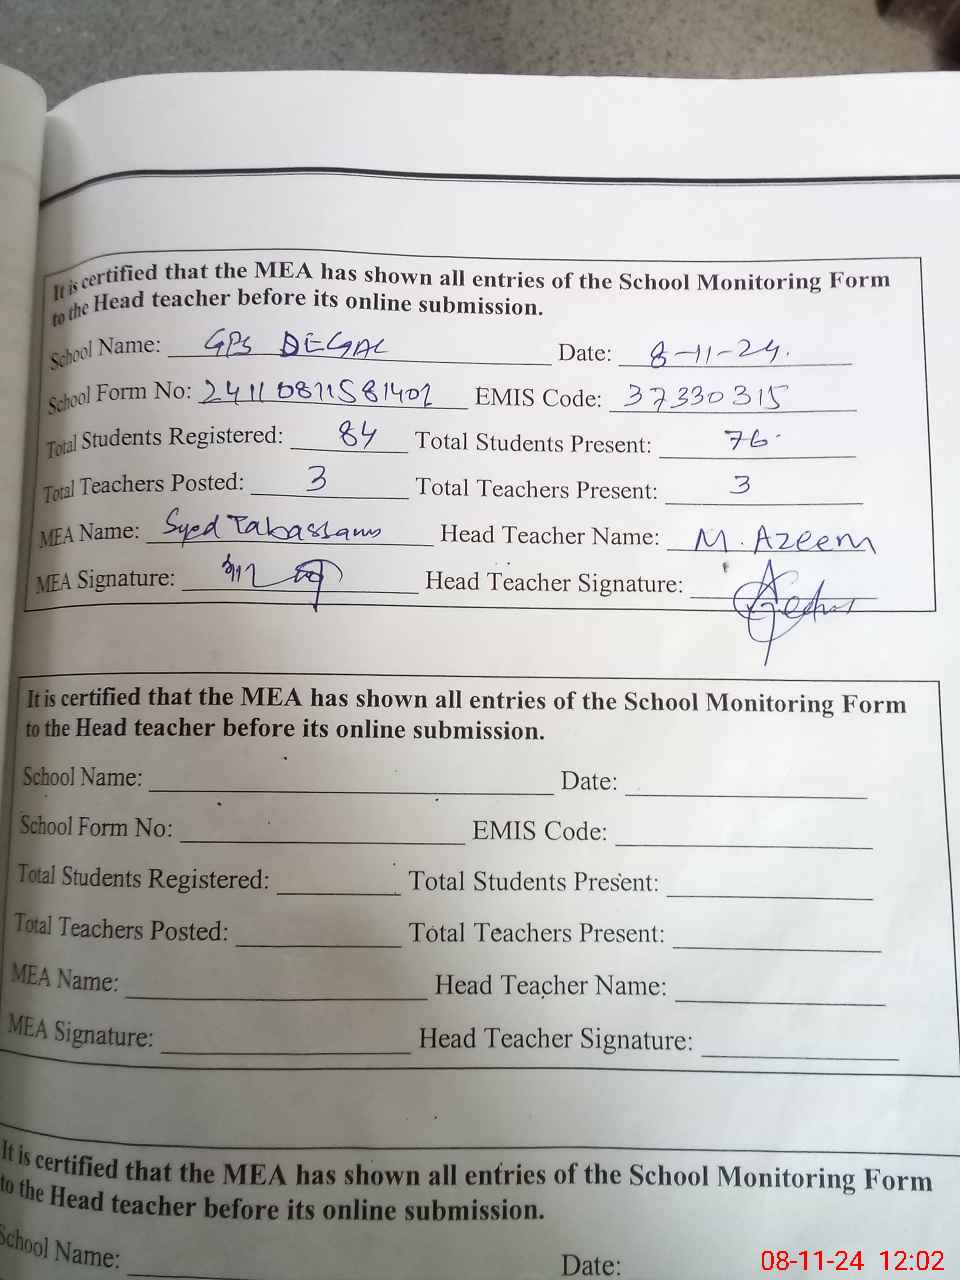 It is certified that the MEA has shown all entries of the School Monitoring Form
to the Head teacher before its online submission.
School Name: GPS DEGAL Date: 8-11-24.
School Form No: 24110811581401 EMIS Code: 37330315
Total Students Registered: 84 Total Students Present: 76.
Total Teachers Posted: 3 Total Teachers Present: 3
MEA Name: Syed Tabassam Head Teacher Name: M. Azeem
MEA Signature: Head Teacher Signature:
It is certified that the MEA has shown all entries of the School Monitoring Form
to the Head teacher before its online submission.
School Name: Date:
School Form No: EMIS Code:
Total Students Registered: Total Students Present:
Total Teachers Posted: Total Teachers Present:
MEA Name: Head Teacher Name:
MEA Signature: Head Teacher Signature:
It is certified that the MEA has shown all entries of the School Monitoring Form
to the Head teacher before its online submission.
School Name: Date:
08-11-24 12:02